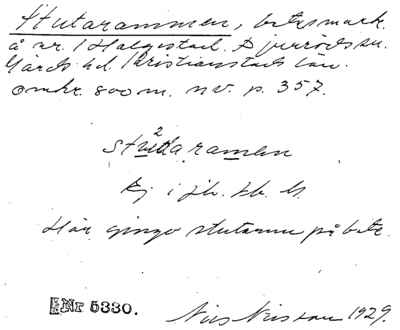 Stutarammen, betesmark
å nr. 1 Helgestad. Djurröds sn.
Gärds hd. Kristianstads län.
omkr. 800 m. nv. p. 357.
2
stutaramen
i
Här gingo stutarna på bete.
Nr 5330.
Nils Nilsson 1929.